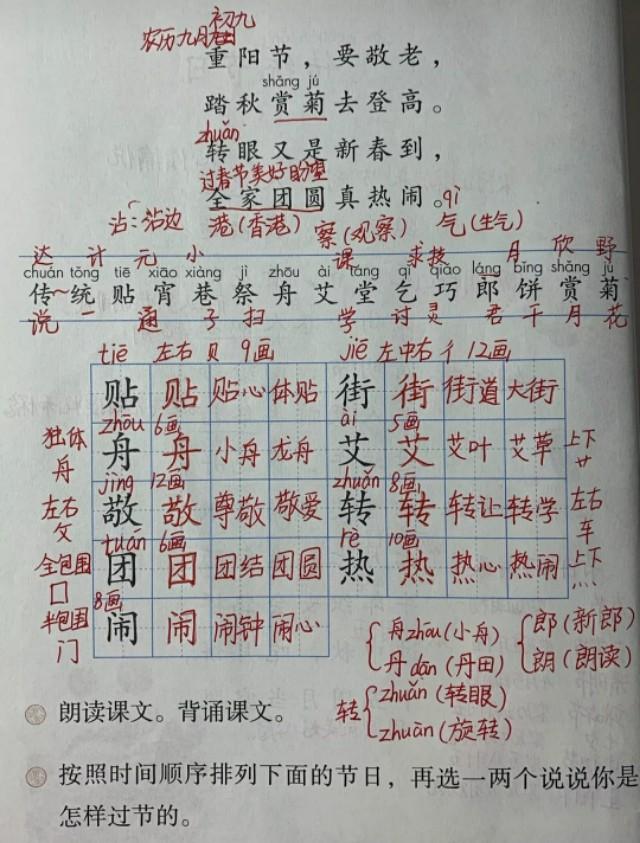 初九
农历九月
重阳节，要敬老，
shǎng jú
踏秋赏菊去登高。
zhuǎn
转眼又是新春到，
过春节美好盼望
全家团圆真热闹。
qì
沾：沾边 港(香港) 察(观察) 气(生气)
达 计 元 小 课 求 技 月 欣 野
chuán tǒng tiē xiāo xiàng jì zhōu ài táng qǐ qiǎo láng bǐng shǎng jú
传统贴宵巷祭舟艾堂乞巧郎饼赏菊
说 一 通 子 扫 学 讨 灵 君 干 月 花
tiē 左右 贝 9画 jiē 左中右 彳 12画
贴 贴 贴心 体贴 街 街 街道 大街
zhōu 6画 ài 5画
独体 舟 舟 舟 小舟 龙舟 艾 艾 艾叶 艾草 上下 艹
jìng 12画 zhuǎn 8画
左右 攵 敬 敬 尊敬 敬爱 转 转 转让 转学 左右 车
tuán 6画 rè 10画
全包围 囗 团 团 团结 团圆 热 热 热心 热闹 上下 灬
8画
半包围 门 闹 闹 闹钟 闹心
舟zhōu(小舟) 郎(新郎)
丹dān(丹田) 朗(朗读)
转 zhuǎn(转眼)
zhuàn(旋转)
朗读课文。背诵课文。
按照时间顺序排列下面的节日，再选一两个说说你是
怎样过节的。